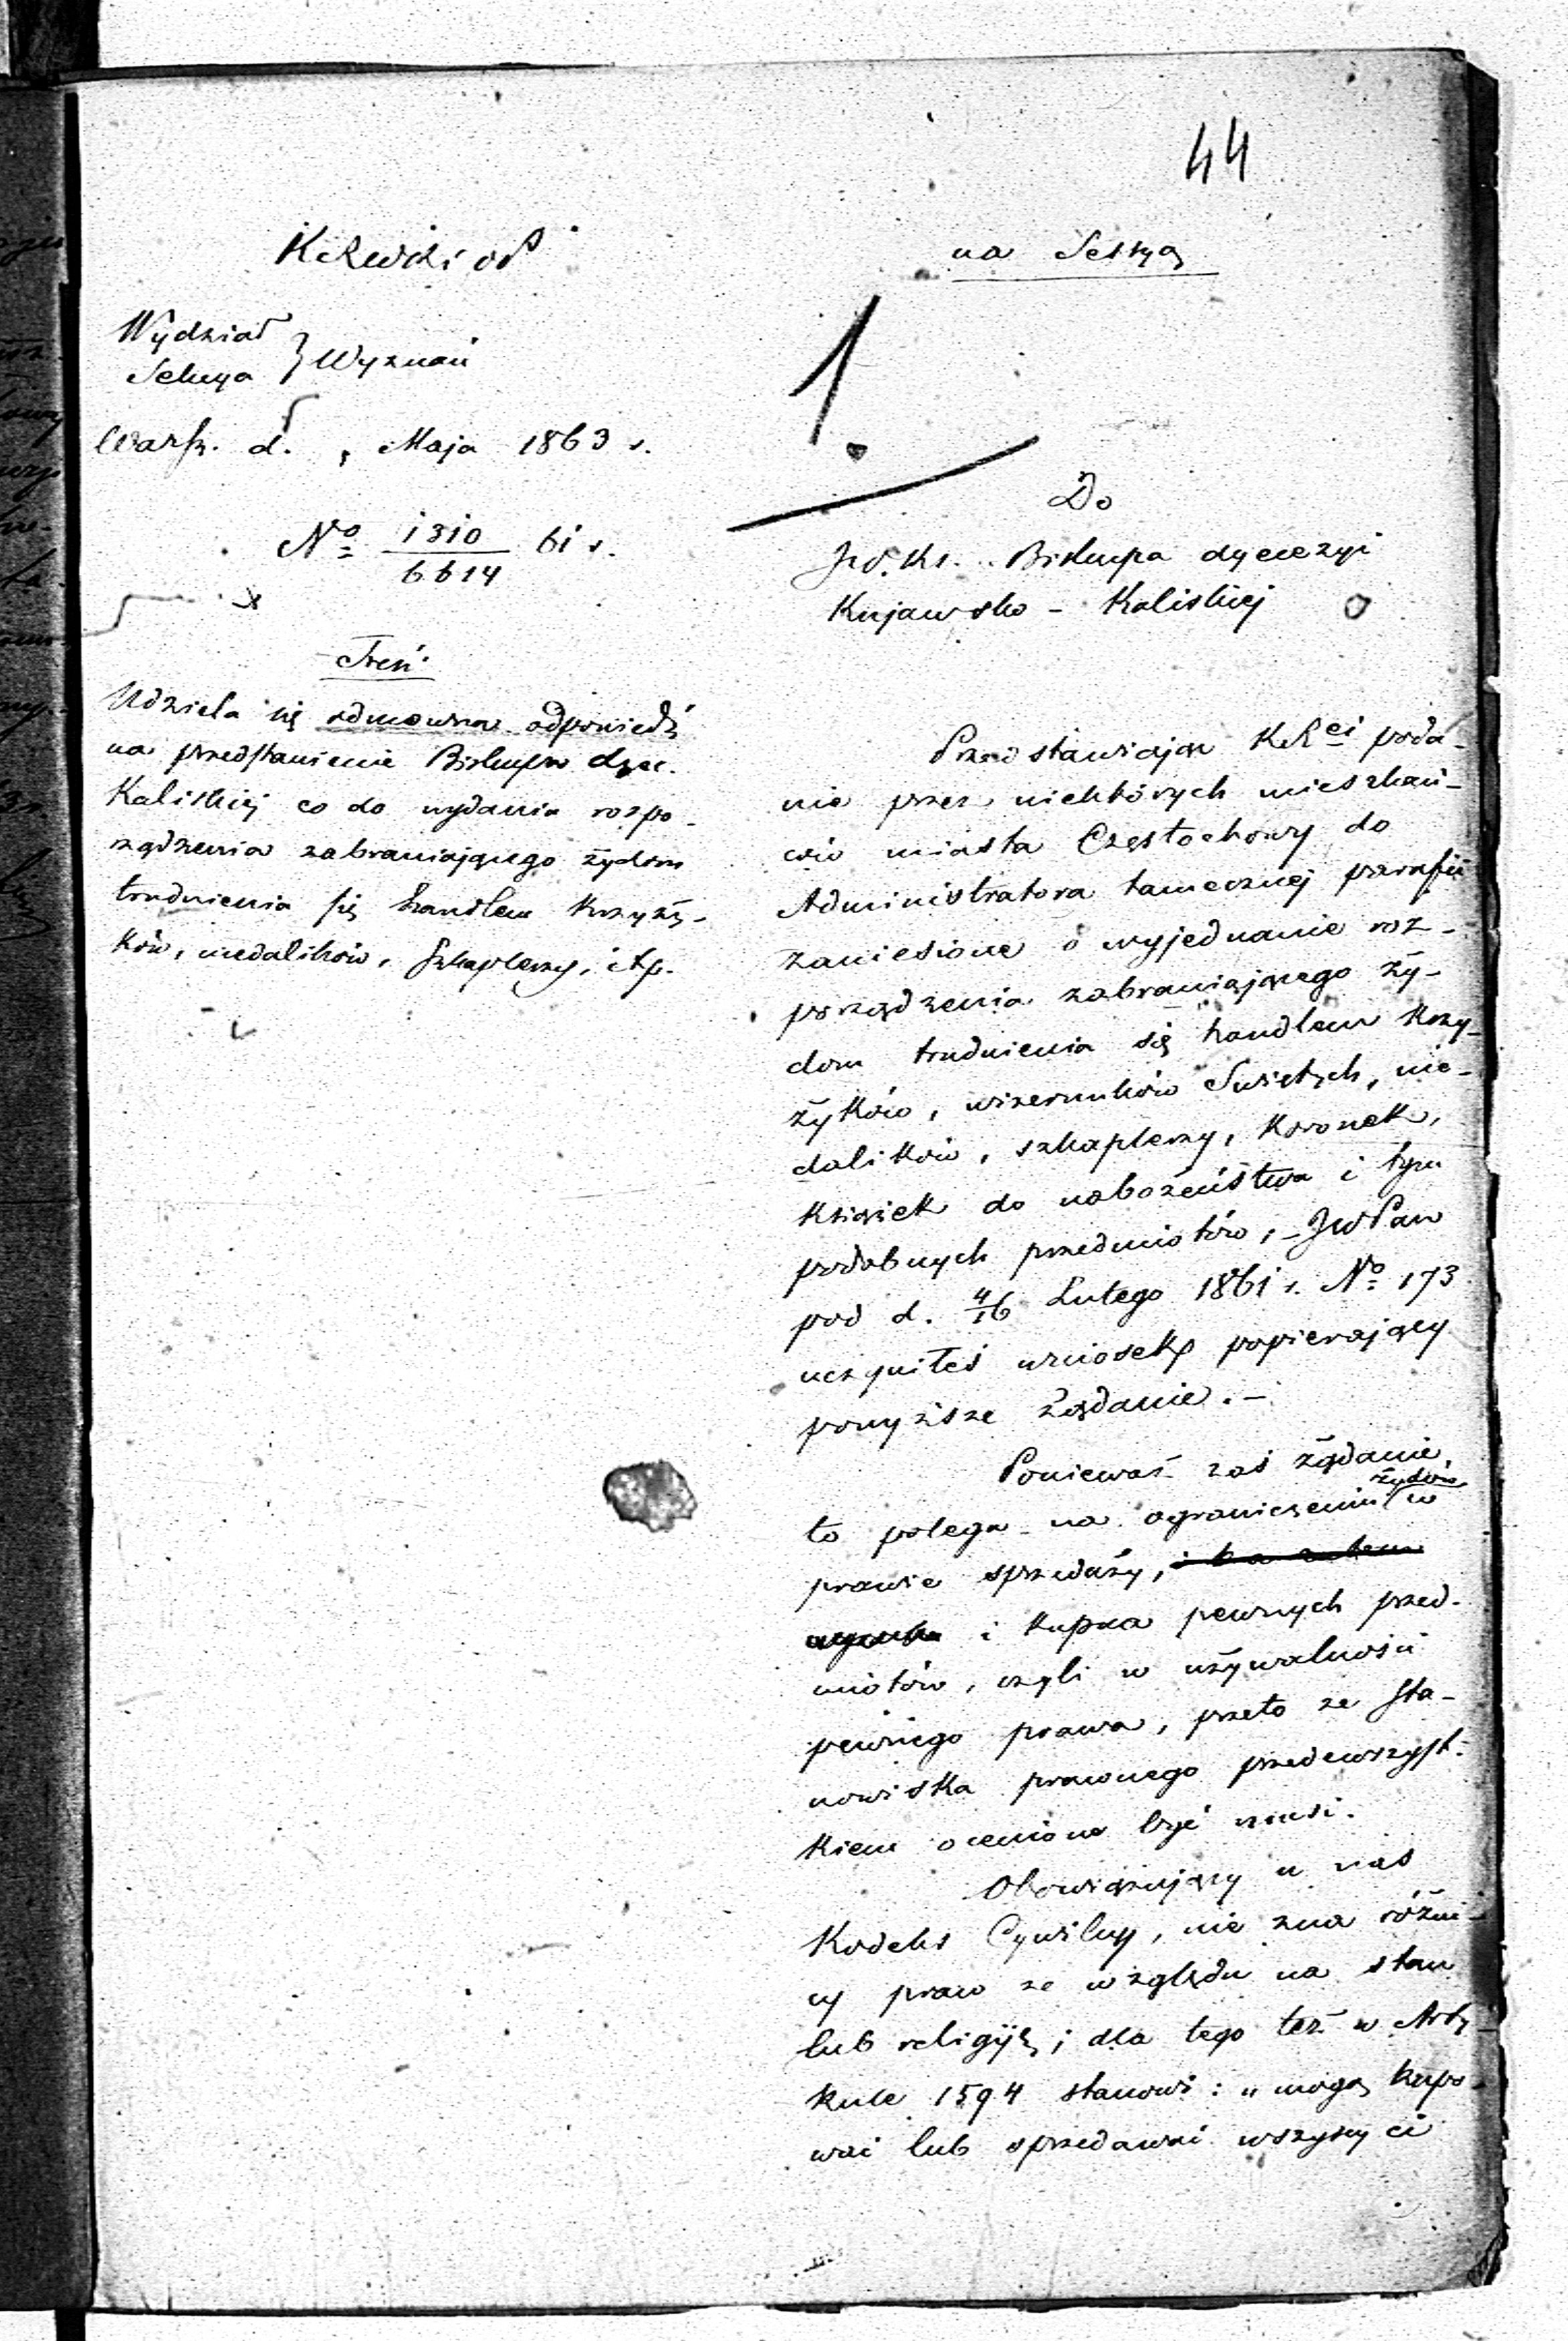 44
na Sessyą
Wydział
Sekcya } Wyznań
Warsz. d. , Maja 1863 r.
1.
Nº 1310/6614 61 r.
Treść
Udziela się odmowna odpowiedź
na przedstawienie Biskupa dyec.
Kaliskiej co do wydania rozpo-
rządzenia zabraniającego żydom
trudnienia się handlem krzyży-
ków, medalików, szkaplerzy, itp.
Do
JW. Ks. Biskupa dyecezyi
Kujawsko - Kaliskiej
Przedstawiając KRei poda-
nie przez niektórych mieszkań-
ców miasta Częstochowy do
Administratora tamecznej parafii
zaniesione o wyjednanie roz-
porządzenia zabraniającego ży-
dom trudnienia się handlem krzy-
żyków, wizerunków Świętych, me-
dalików, szkaplerzy, koronek,
książek do nabożeństwa i tym
podobnych przedmiotów, - JW Pan
pod d. 4/16 Lutego 1861 r. Nº 173
uczyniłeś wniosek popierający
powyższe żądanie. -
Ponieważ zaś żądanie
to polega na ograniczeniu żydów w
prawie sprzedaży,
i kupna pewnych przed-
miotów, czyli w używalności
pewnego prawa, przeto ze sta-
nowiska prawnego przedewszyst-
kiem ocenione być musi.
Obowiązujący u nas
Kodeks Cywilny, nie zna różni-
cy praw ze względu na stan
lub religiję; dla tego też w Arty-
kule 1594 stanowi: "mogą kupo-
wać lub sprzedawać wszyscy ci